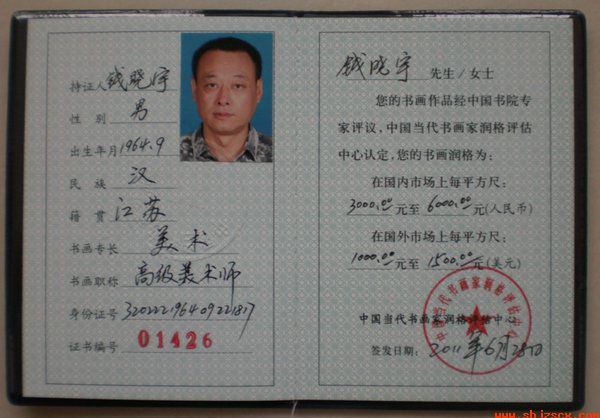 持证人 钱晓宇
性 别 男
出生年月 1964.9
民 族 汉
籍 贯 江苏
书画专长 美术
书画职称 高级美术师
身份证号
证书编号 01426
钱晓宇 先生/女士
您的书画作品经中国书院专
家评议,中国当代书画家润格评估
中心认定,您的书画润格为:
在国内市场上每平方尺:
3000.00元至 6000.00元(人民币)
在国外市场上每平方尺:
1000.00元至 1500.00元(美元)
中国当代书画家润格评估中心
中国当代书画家润格评估中心
签发日期: 2011年6月28日
www.shjzscx.com